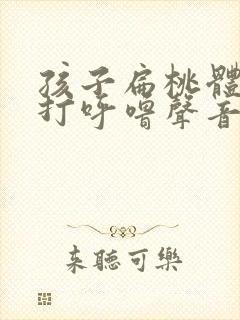 孩子扁桃體
打呼嚕聲音
來聽可樂